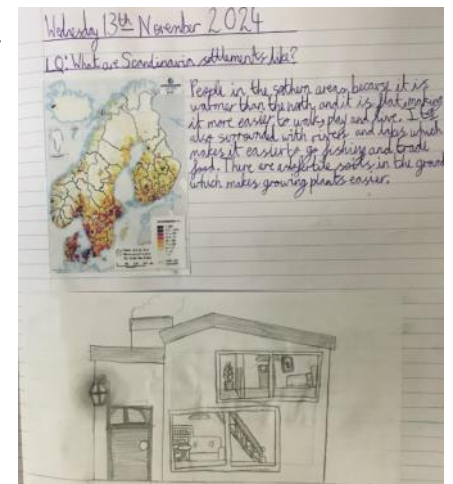 Wednesday 13th November 2024
LQ: What are Scandinavia settlements like?
People in the sothern areas because it is
warmer than the north and it is flat, making
it more easier to walk, play and live. Its
also surrounded with rivers and lakes which
makes it easier to go fishing and trade
food. There are soils in the ground
which makes growing plants easier.